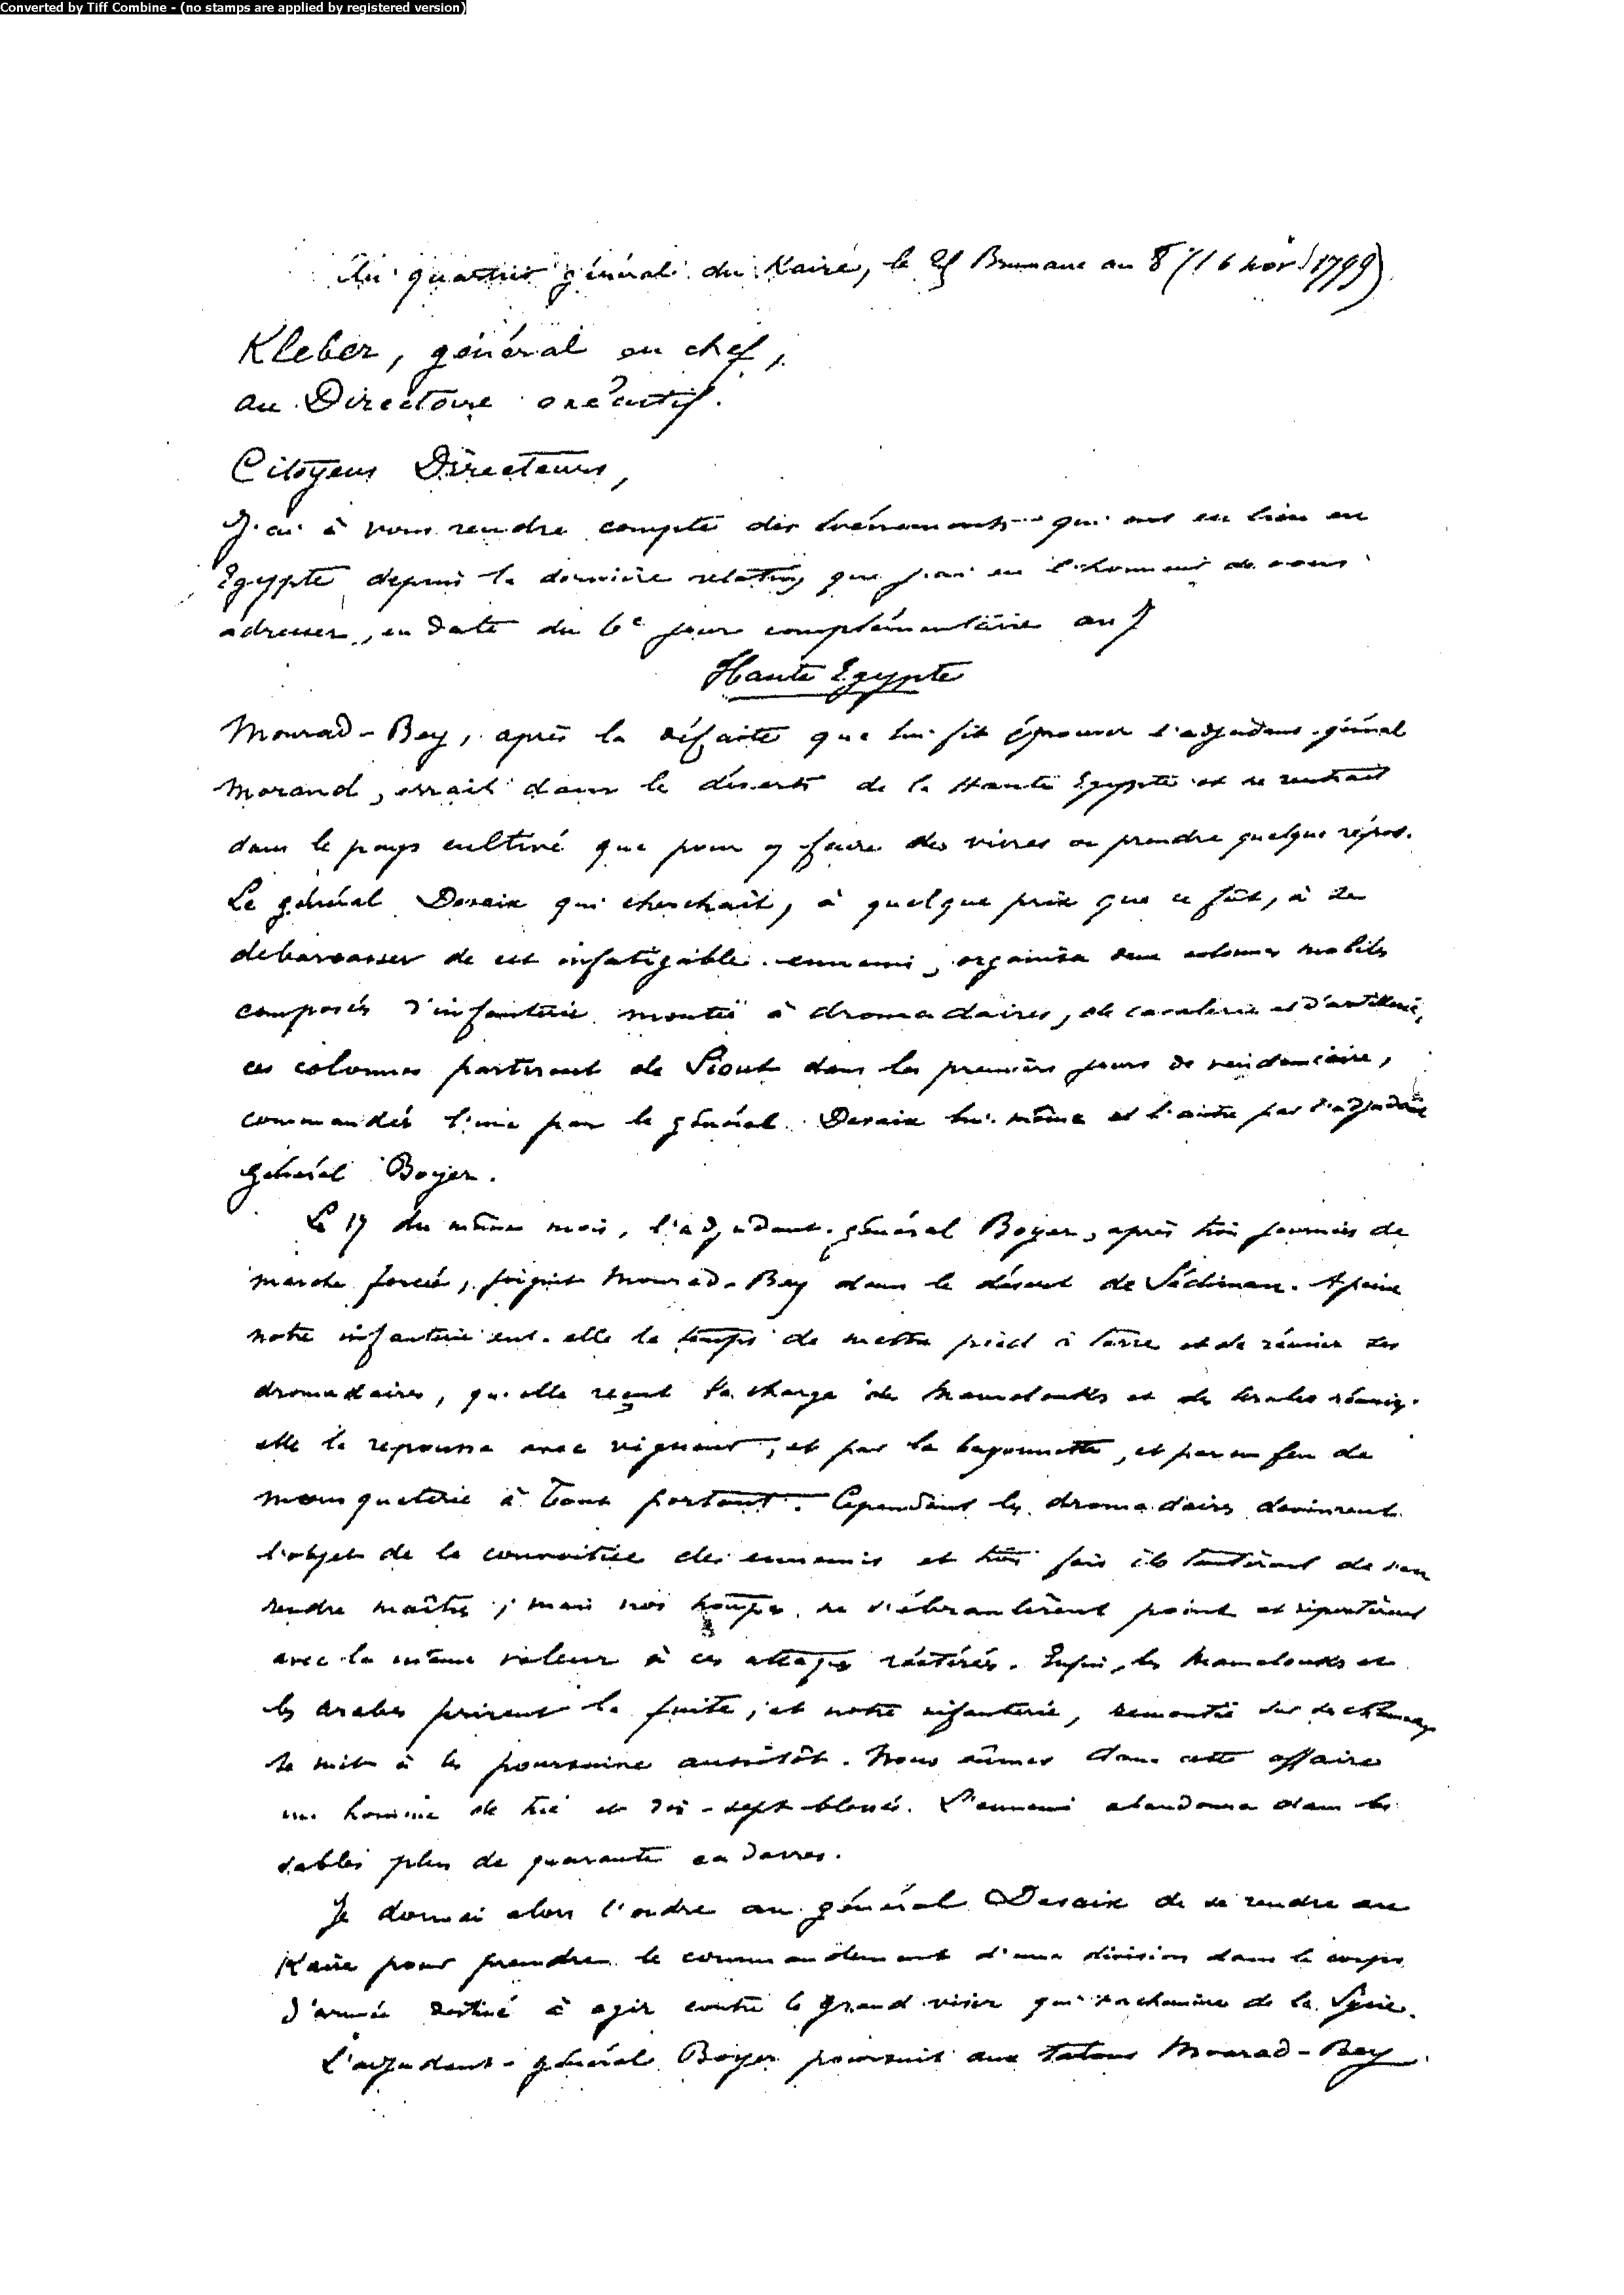 Converted by Tiff Combine - (no stamps are applied by registered version)
Au quartier général du Kaire, le 25 Brumaire an 8 (16 nov. 1799)
Kleber, général en chef,
au Directoire exécutif.
Citoyens Directeurs,
J'ai à vous rendre compte des événements qui ont eu lieu en
Egypte depuis la dernière relation que j'ai eu l'honneur de vous
adresser, en date du 6e jour complémentaire an 7
Haute Egypte
Mourad-Bey, après la défaite que lui fit éprouver l'adjudant-général
Morand, errait dans le désert de la Haute Egypte et ne rentrait
dans le pays cultivé que pour y faire des vivres ou prendre quelque repos.
Le général Desaix qui cherchait, à quelque prix que ce fût, à se
debarrasser de cet infatigable ennemi, organisa deux colonnes mobiles
composées d'infanterie montée à dromadaires, de cavalerie et d'artillerie,
ces colonnes partirent de Siout dans les premiers jours de vendémiaire,
commandés l'une par le général Desaix lui-même et l'autre par l'adjudant
général Boyer.
Le 17 du même mois, l'adjudant-général Boyer, après trois journées de
marche forcée, joignit Mourad-Bey dans le désert de Sédiman. A peine
notre infanterie eut-elle le temps de mettre pied à terre et de réunir ses
dromadaires, qu'elle reçut la charge de Mamelouks et de Arabes réunis.
elle la repoussa avec vigueur, et par la bayonnette, et par un feu de
mousqueterie à bout portant. Cependant les dromadaires devinrent
l'objet de la convoitise des ennemis et trois fois ils tentèrent de s'en
rendre maîtres ; mais nos troupes ne s'ébranlèrent point et ripostèrent
avec la même valeur à ces attaques réitérées. Enfin, les Mamelouks et
les Arabes prirent la fuite, et notre infanterie, remontée sur des chameaux
se mit à les poursuivre aussitôt. Nous eûmes dans cette affaire
un homme de tué et dix-sept blessés. L'ennemi abandonna dans les
sables plus de quarante cadavres.
Je donnai alors l'ordre au général Desaix de se rendre au
Kaire pour prendre le commandement d'une division dans le corps
d'armée destiné à agir contre le grand visir qui s'achemine de la Syrie.
L'adjudant-général Boyer poursuit aux talons Mourad-Bey.